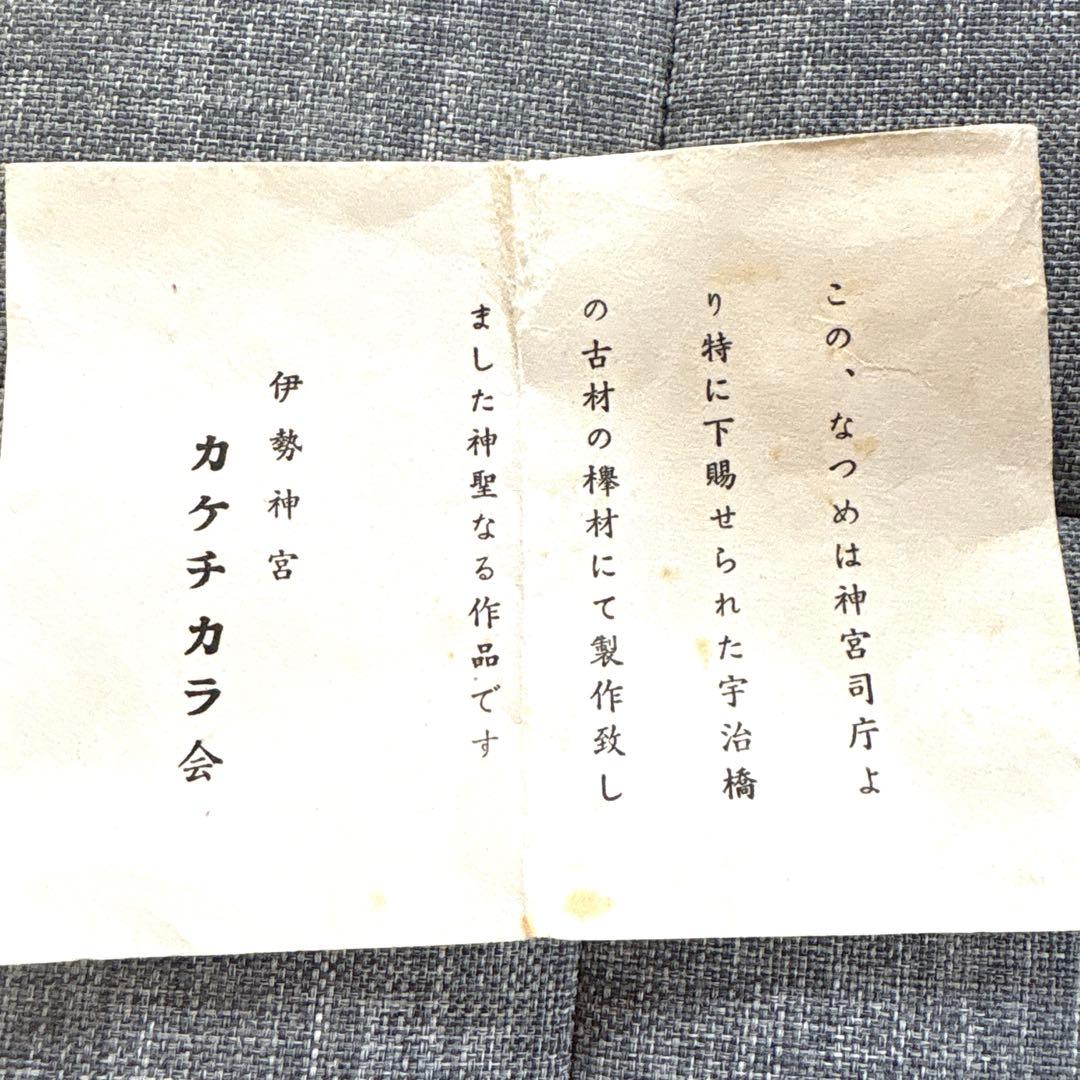 この、なつめは神宮司庁よ
り特に下賜せられた宇治橋
の古材の欅材にて製作致し
ました神聖なる作品です
伊勢神宮
カケチカラ会